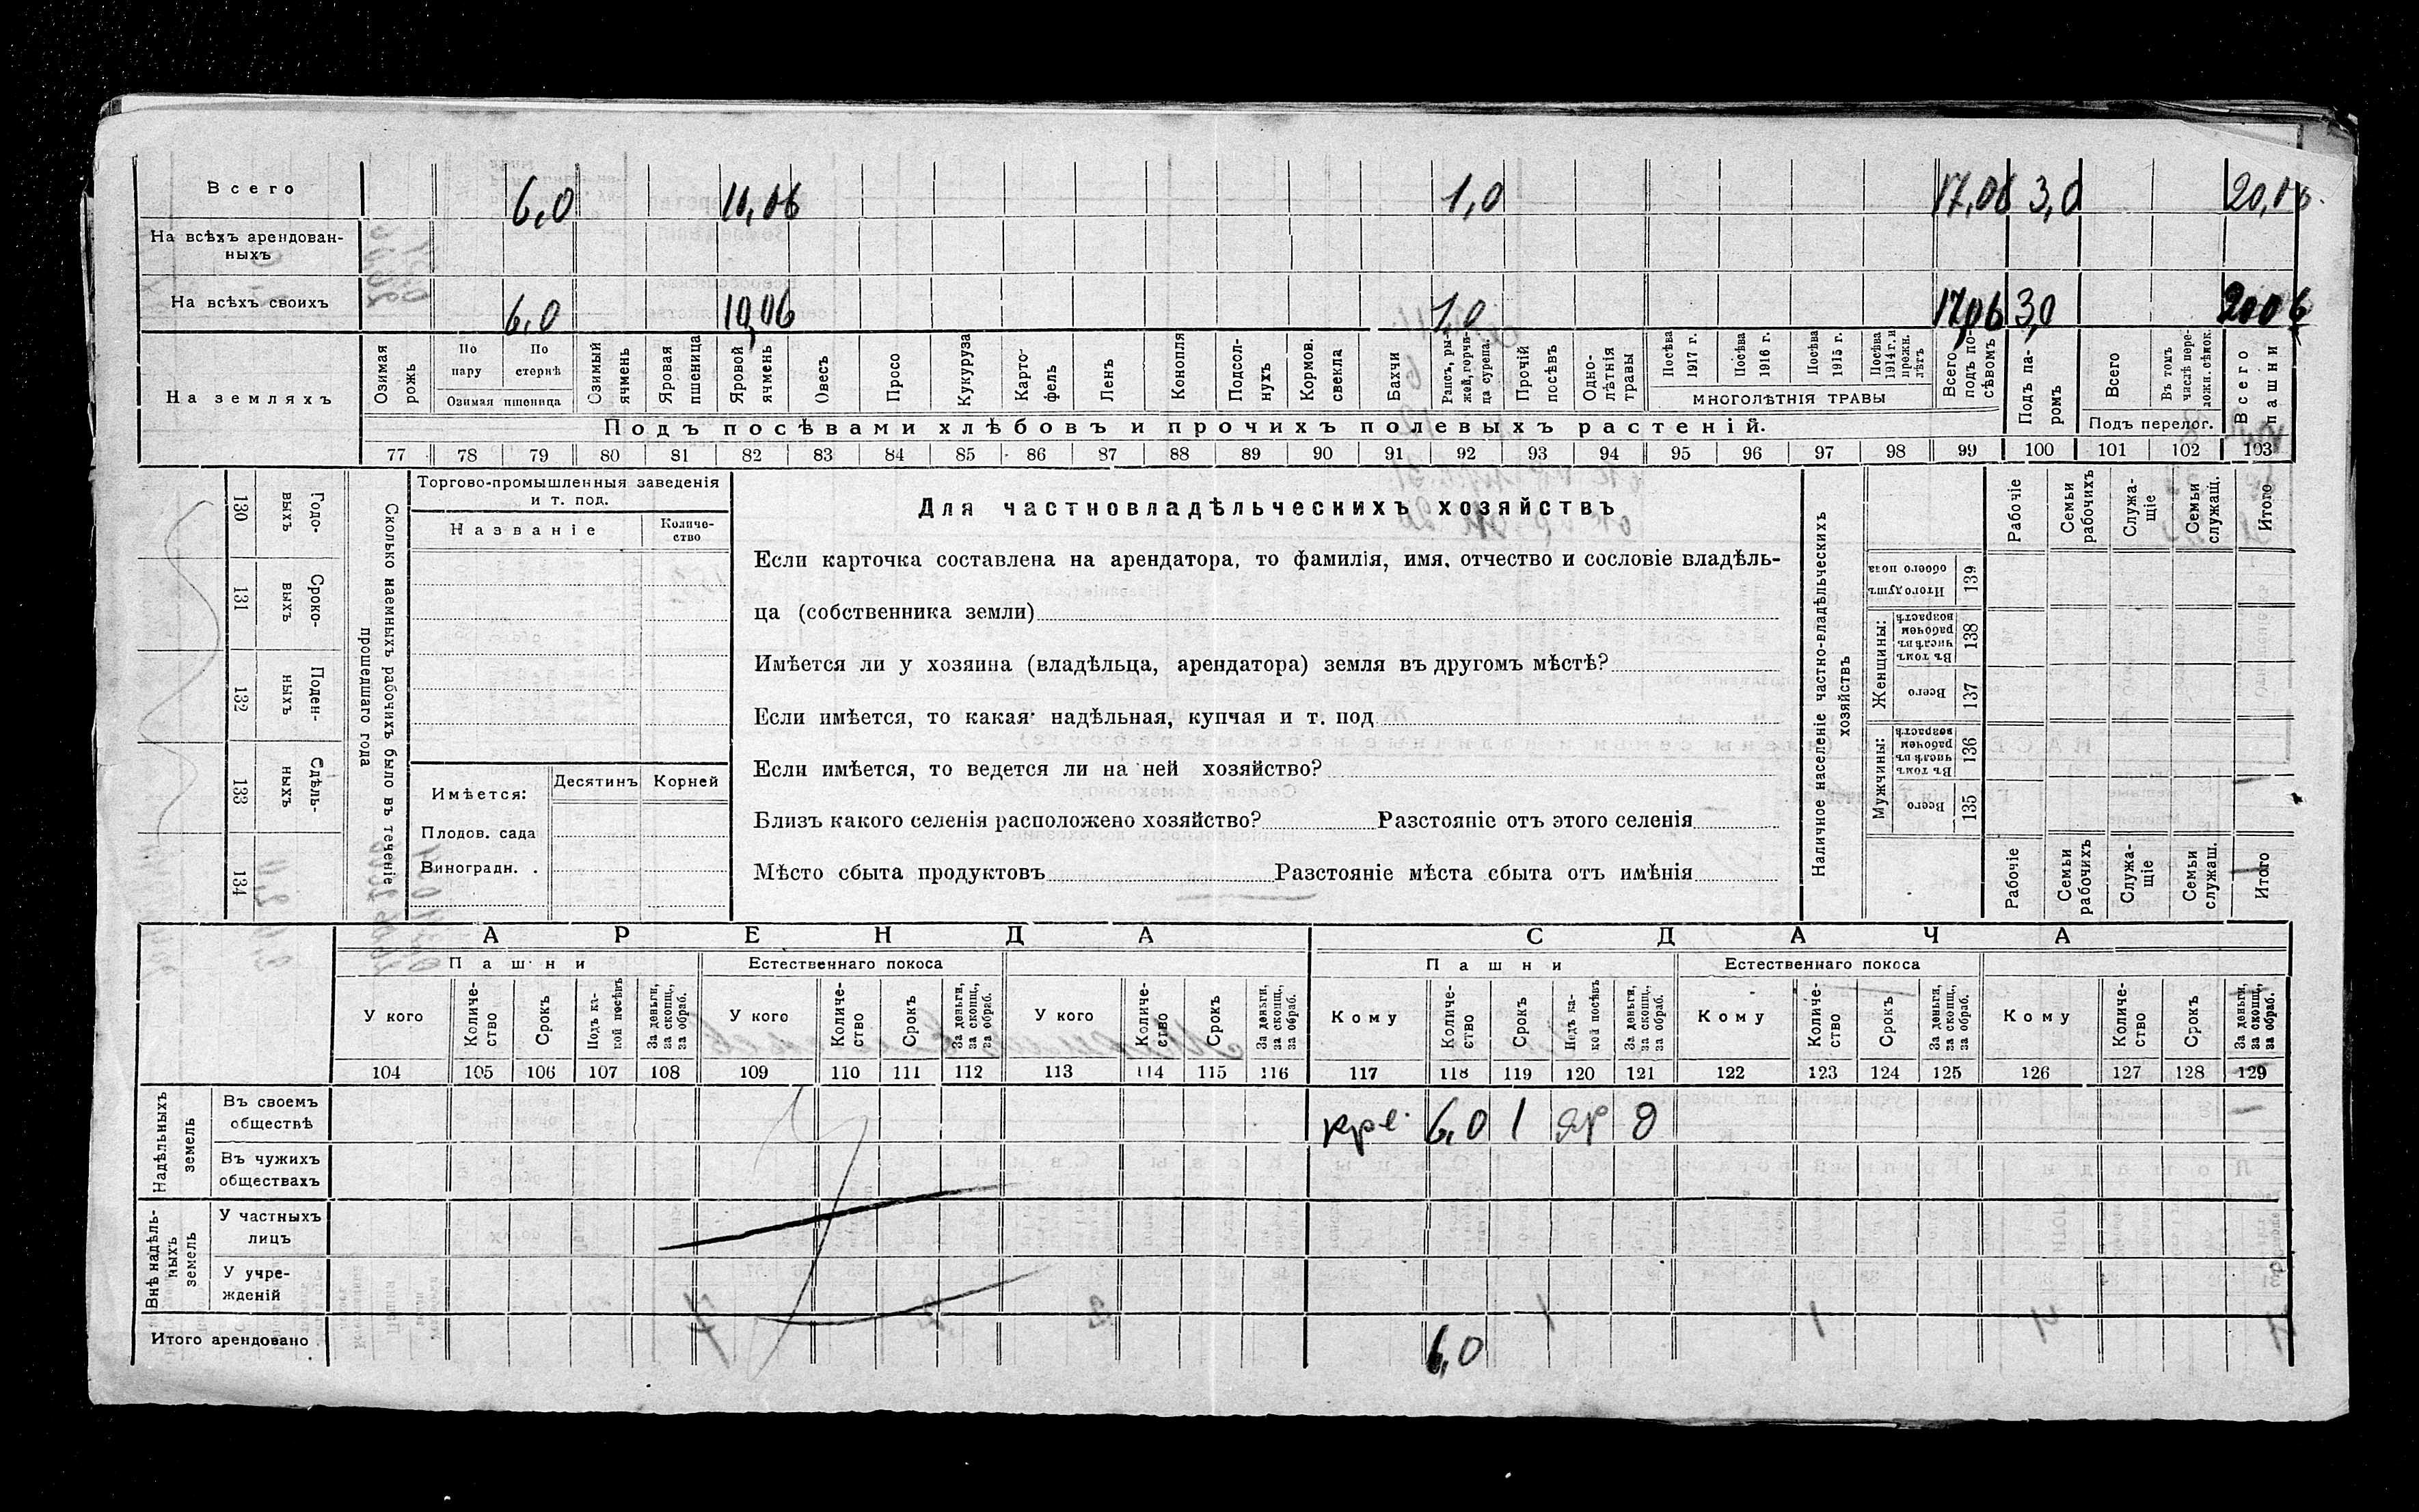 Всего 6,0 10,06 1,0 17,06 3,0 20,06
На всѣхъ арендован-
ныхъ
На всѣхъ своихъ 6,0 10,06 1,0 17,06 3,0 20,06
На земляхъ
Озимая рожь
По пару
По стернѣ
Озимая пшеница
Озимый ячмень
Яровая пшеница
Яровой ячмень
Овесъ
Просо
Кукуруза
Карто-
фель
Ленъ
Конопля
Подсол-
нухъ
Кормов. свекла
Бахчи
Рапсъ, ры-
жей, горчи-
ца сурепа.
Прочій посѣвъ
Одно-
лѣтнія травы
Посѣва 1917 г.
Посѣва 1916 г.
Посѣва 1915 г.
Посѣва 1914 г. и прежн. лѣтъ
МНОГОЛѢТНІЯ ТРАВЫ
Всего подъ по-
сѣвомъ
Подъ па-
ромъ
Всего
Въ томъ числѣ пере-
ложн. сѣнок.
Подъ перелог.
Всего пашни
Подъ посѣвами хлѣбовъ и прочихъ полевыхъ растеній.
77 78 79 80 81 82 83 84 85 86 87 88 89 90 91 92 93 94 95 96 97 98 99 100 101 102 103
130 Годо-
выхъ
131 Сроко-
выхъ
132 Поден-
ныхъ
133 Сдѣль-
ныхъ
134
Сколько наемныхъ рабочихъ было въ теченіе
прошедшаго года
Торгово-промышленныя заведенія
и т. под.
Названіе
Количе-
ство
Имѣется: Десятинъ Корней
Плодов. сада
Виноградн. .
Для частновладѣльческихъ хозяйствъ
Если карточка составлена на арендатора, то фамилія, имя, отчество и сословіе владѣль-
ца (собственника земли)
Имѣется ли у хозяина (владѣльца, арендатора) земля въ другомъ мѣстѣ?
Если имѣется, то какая надѣльная, купчая и т. под
Если имѣется, то ведется ли на ней хозяйство?
Близъ какого селенія расположено хозяйство? Разстояніе отъ этого селенія
Мѣсто сбыта продуктовъ Разстояніе мѣста сбыта отъ имѣнія
Наличное населеніе частно-владѣльческихъ
хозяйствъ
Рабочіе
Семьи рабочихъ
Служа-
щіе
Семьи служащ.
Итого
Итого душъ обоего пола 139
Женщины:
Въ томъ числѣ въ рабочем возрастѣ 138
Всего 137
Мужчины:
Въ томъ числѣ въ рабочем возрастѣ 136
Всего 135
Рабочіе
Семьи рабочихъ
Служа-
щіе
Семьи служащ.
Итого
АРЕНДА СДАЧА
Пашни Естественнаго покоса Пашни Естественнаго покоса
У кого
Количе-
ство
Срокъ
Подъ ка-
кой посѣвъ
За деньги, за скопщ., за обраб.
У кого
Количе-
ство
Срокъ
За деньги, за скопщ., за обраб.
У кого
Количе-
ство
Срокъ
За деньги, за скопщ., за обраб.
Кому
Количе-
ство
Срокъ
Подъ ка-
кой посѣвъ
За деньги, за скопщ., за обраб.
Кому
Количе-
ство
Срокъ
За деньги, за скопщ., за обраб.
Кому
Количе-
ство
Срокъ
За деньги, за скопщ., за обраб.
104 105 106 107 108 109 110 111 112 113 114 115 116 117 118 119 120 121 122 123 124 125 126 127 128 129
Надѣльныхъ земель
Въ своемъ
обществѣ кре. 6,0 1 яр д
Въ чужихъ
обществахъ
Внѣ надѣль-
ныхъ земель
У частныхъ
лицъ
У учре-
жденій
Итого арендовано 6,0